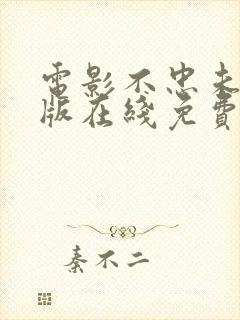 電影不忠未
版在綫免費
秦不二